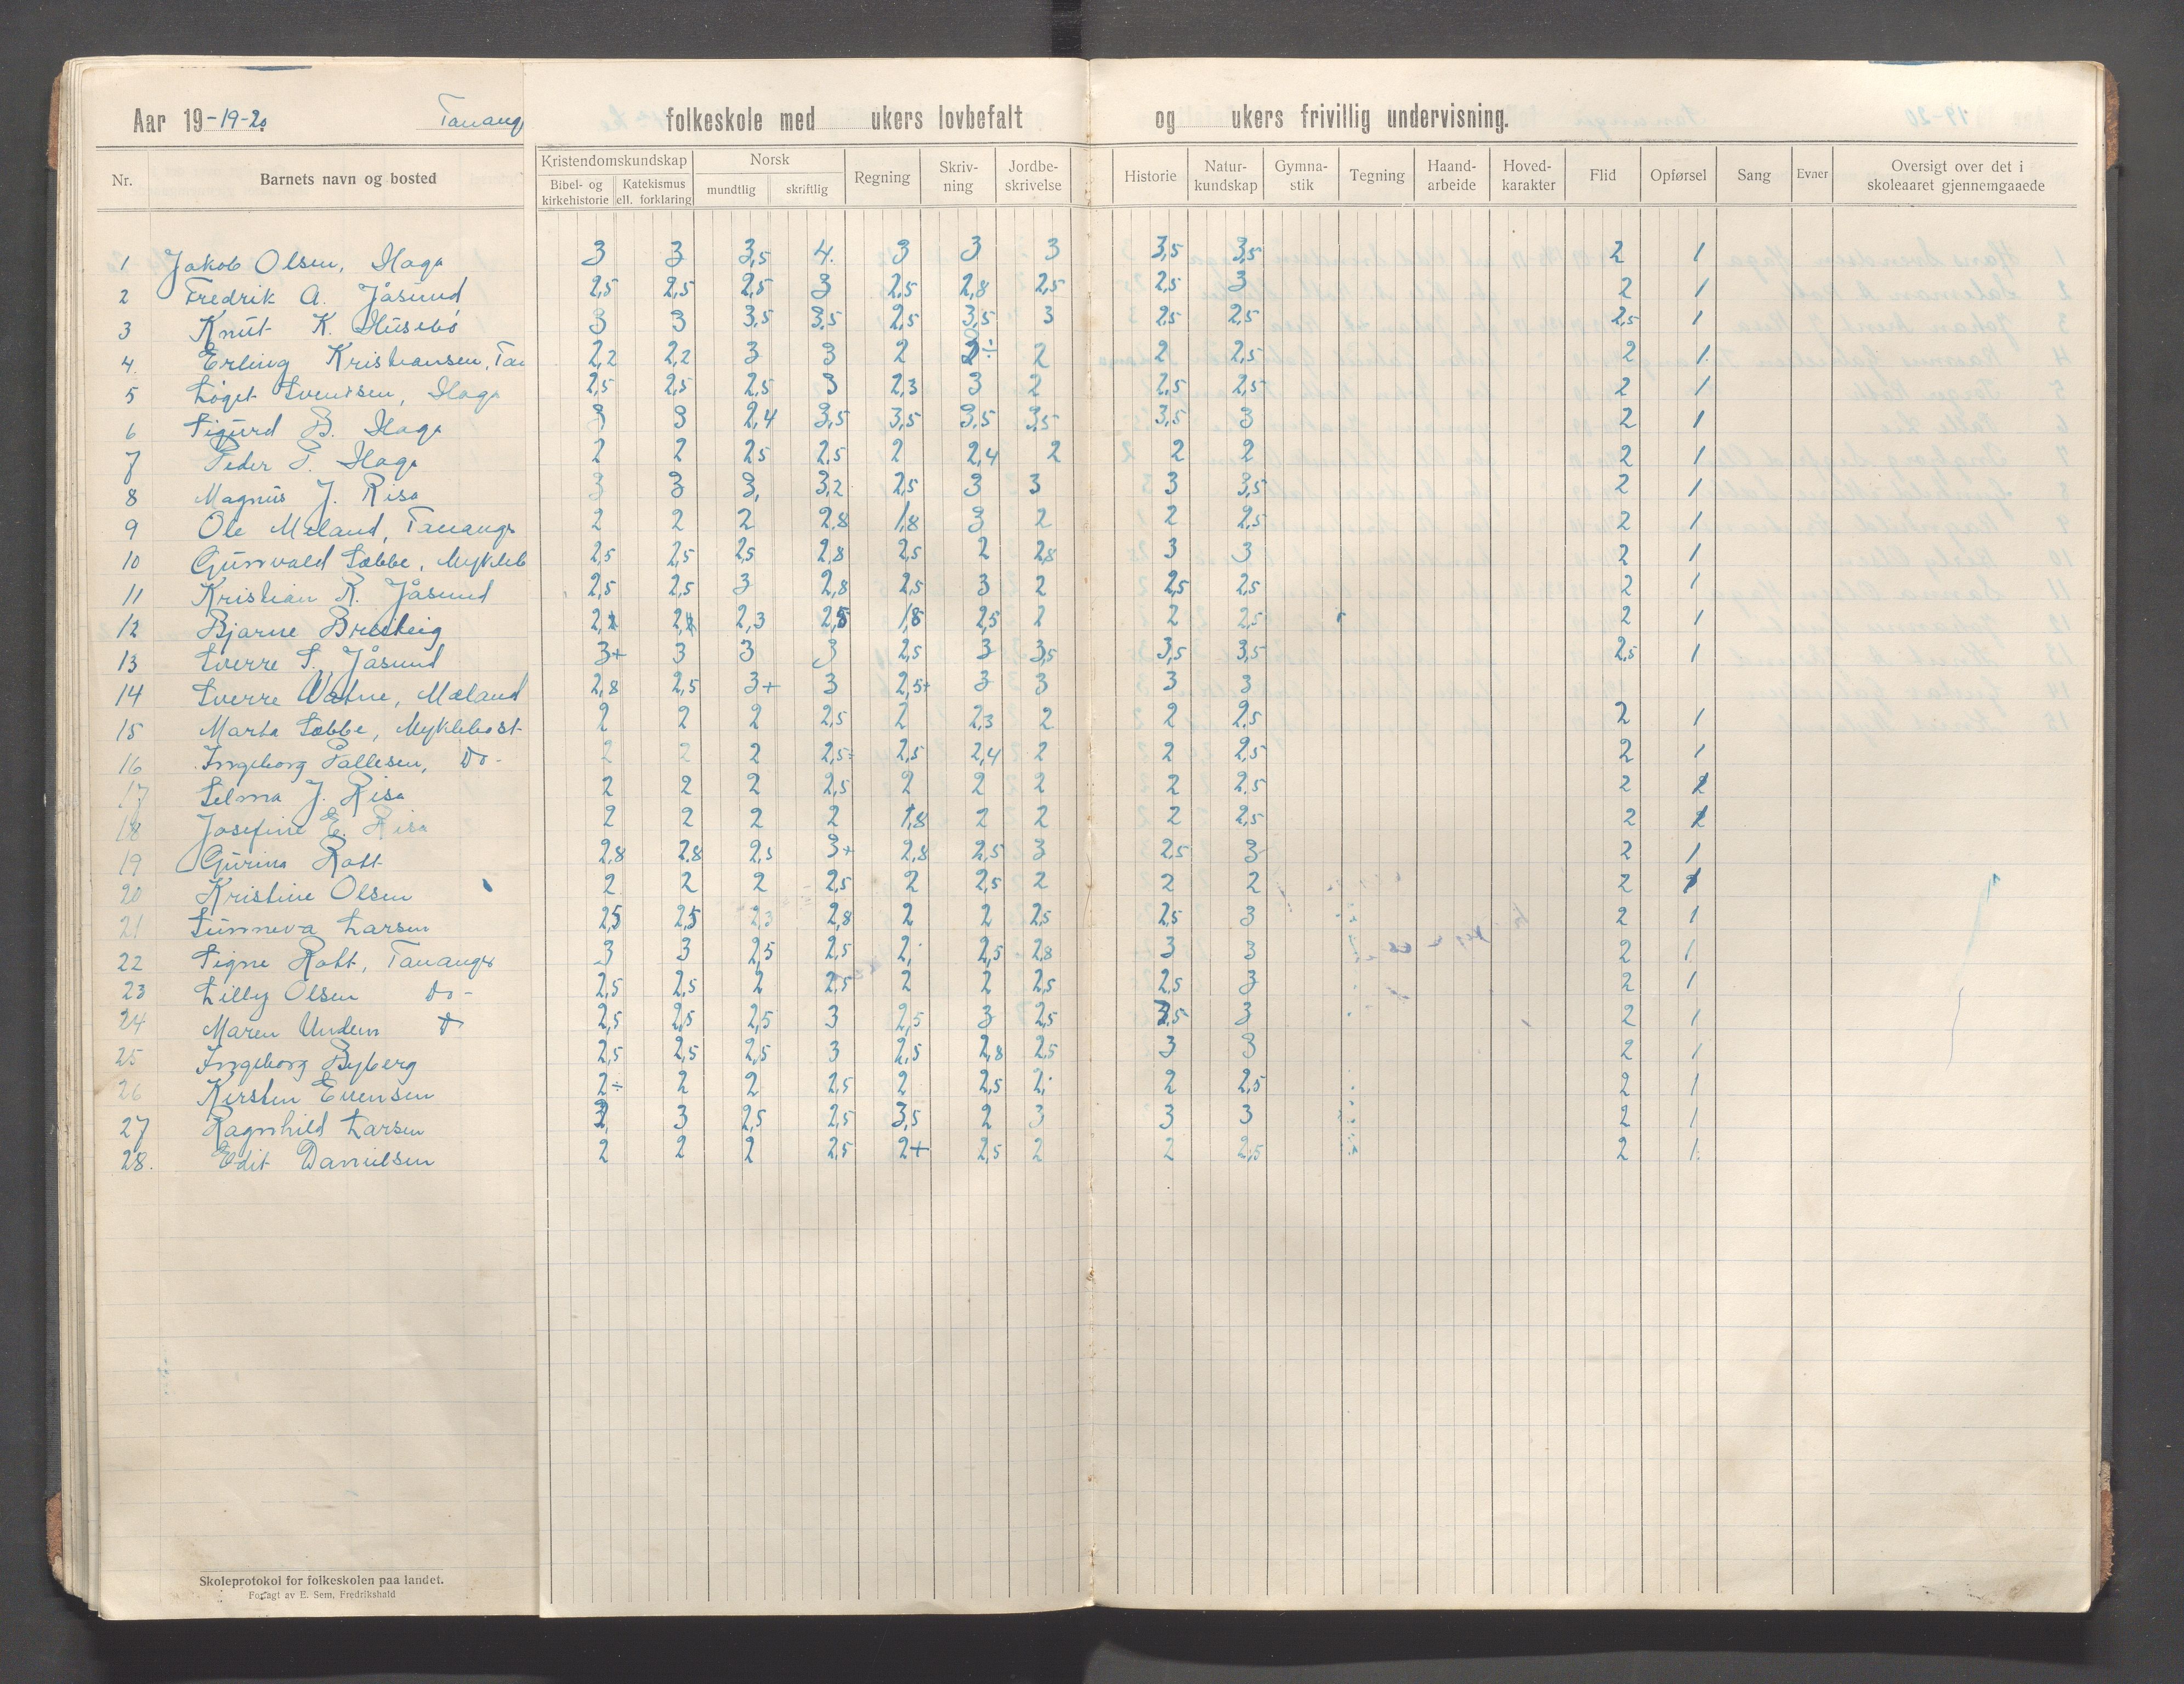 Aar 19-19-20. Tanang folkeskole med ukers lovbefalt og ukers frivillig undervisning.
Nr. Barnets navn og bosted Kristendomskundskap Norsk Regning Skriv-ning Jordbe-skrivelse Historie Natur-kundskap Gymna-stik Tegning Haand-arbeide Hoved-karakter Flid Opførsel Sang Evner Oversigt over det i skoleaaret gjennemgaaede
Bibel- og kirkehistorie Katekismus ell. forklaring mundtlig skriftlig
1 Jakob Olsen, Haga 3 3 3,5 4. 3 3 3 3,5 3,5 2 1
2 Fredrik A. Jåsund 2,5 2,5 2,5 3 2,5 2,8 2,5 2,5 3 2 1
3 Knut K. Husebø 3 3 3,5 3,5 2,5 3,5 3 2,5 2,5 2,5 1
4. Erling Kristiansen, Tan 2,2 2,2 3 3 2 2÷ 2 2 2,5 2 1
5 Løget Svensen, Haga 2,5 2,5 2,5 3 2,3 3 2 2,5 2,5 2 1
6 Sigurd B. Haga 3 3 2,4 3,5 3,5 3,5 3,5 3,5 3 2 1
7 Peder P. Haga 2 2 2,5 2,5 2 2,4 2 2 2 2 1
8 Magnus J. Risa 3 3 3, 3,2 2,5 3 3 3 3,5 2 1
9 Ole Meland, Tanange 2 2 2 2,8 1,8 3 2 2 2,5 2 1
10 Gunvald Sæbbe, Mykleb 2,5 2,5 2,5 2,8 2,5 2 2,8 3 3 2 1
11 Kristian R. Jåsund 2,5 2,5 3 2,8 2,5 3 2 2,5 2,5 2 1
12 Bjarne 2,3 2,5 1,8 2,5 2 2 2,5 2 1
13 Sverre S. Jåsund 3+ 3 3 3 2,5 3 3,5 3,5 3,5 2,5 1
14 Sverre Vatne, Mæland 2,8 2,5 3+ 3 2,5+ 3 3 3 3
15 Marta Sæbbe, Myklebost 2 2 2 2,5 2 2,3 2 2 2,5 2 1
16 Ingeborg Pallesen, Do- 2 2 2 2,5÷ 2,5 2,4 2 2 2,5 2 1
17 Selma J. Risa 2 2 2 2,5 2 2 2 2 2,5 2 1
18 Josefine E. Risa 2 2 2 2 1,8 2 2 2 2,5 2 1
19 Gurina Rott 2,8 2,8 2,5 3+ 2,8 2,5 3 2,5 3 2 1
20 Kristine Olsen 2 2 2 2,5 2 2,5 2 2 2 2 1
21 Sunneva Larsen 2,5 2,5 2,3 2,8 2 2 2,5 2,5 3 2 1
22 Signe Rott, Tananger 3 3 2,5 2,5 2, 2,5 2,8 3 3 2 1
23 Lilly Olsen Do- 2,5 2,5 2 2,5 2 2 2,5 2,5 3 2 1
24 Maren Undem D 2,5 2,5 2,5 3 2,5 3 2,5 3,5 3 2 1
25 Ingeborg Byberg 2,5 2,5 2,5 3 2,5 2,8 2,5 3 3 2 1
26 Kirsten Evensen 2÷ 2 2 2,5 2 2,5 2. 2 2,5 2 1
27 Ragnhild Larsen 3 2,5 2,5 3,5 2 3 3 3 2 1
28. Edit Danielsen 2 2 2 2,5 2+ 2,5 2 2 2,5 2 1
Skoleprotokol for folkeskolen paa landet.
Forlagt av E. Sem, Fredrikshald